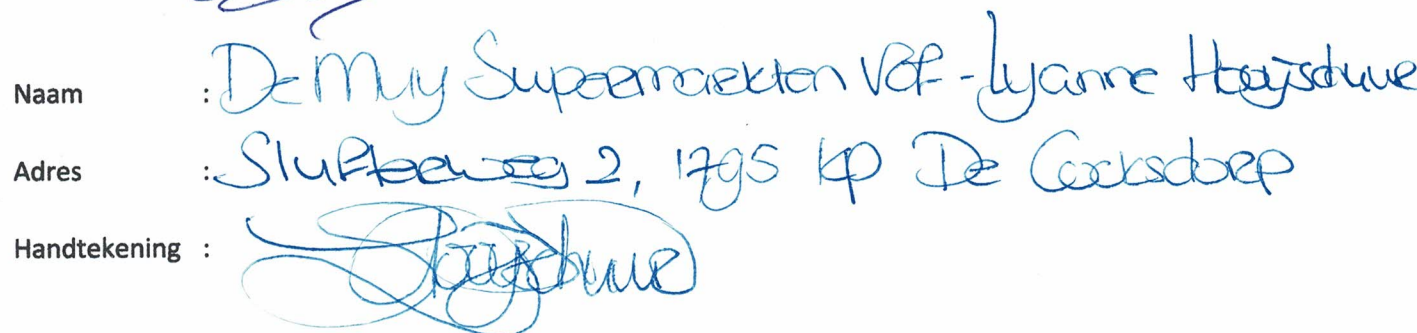 Naam : De Muy Supermarkten VOF - Lyanne Hooijschuur
Adres : Slufterweg 2, 1795 KP De Cocksdorp
Handtekening :